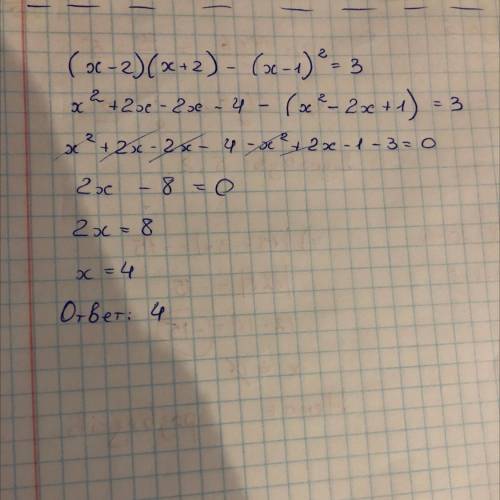 (x-2)(x+2) - (x-1)² = 3
x² + 2x - 2x - 4 - (x² - 2x + 1) = 3
x² + 2x - 2x - 4 - x² + 2x - 1 - 3 = 0
2x - 8 = 0
2x = 8
x = 4
Ответ: 4